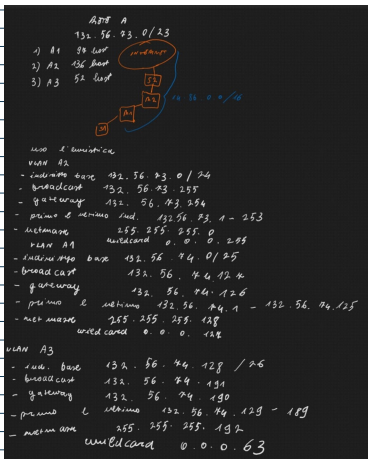 RETE A
132. 56. 73. 0/23
1) A1 97 host
2) A2 136 host
3) A3 52 host
INTERNET
A2
A1
10. 36. 0. 0/16
uso l'euristica
VLAN A2
- indirizzo base 132. 56. 73. 0/24
- broadcast 132. 56. 73. 255
- gateway 132. 56. 73. 254
- primo e ultimo ind. 132.56. 73. 1 - 253
- netmask 255. 255. 255. 0
wildcard 0. 0. 0. 255
VLAN A1
- indirizzo base 132. 56. 74. 0/25
- broadcast 132. 56. 74. 127
- gateway 132. 56. 74. 126
- primo e ultimo 132. 56. 74. 1 - 132. 56. 74. 125
- netmask 255. 255. 255. 128
wildcard 0. 0. 0. 127
VLAN A3
- ind. base 132. 56. 74. 128 /26
- broadcast 132. 56. 74. 191
- gateway 132. 56. 74. 190
- primo e ultimo 132. 56. 74. 129 - 189
- netmask 255. 255. 255. 192
wildcard 0. 0. 0. 63